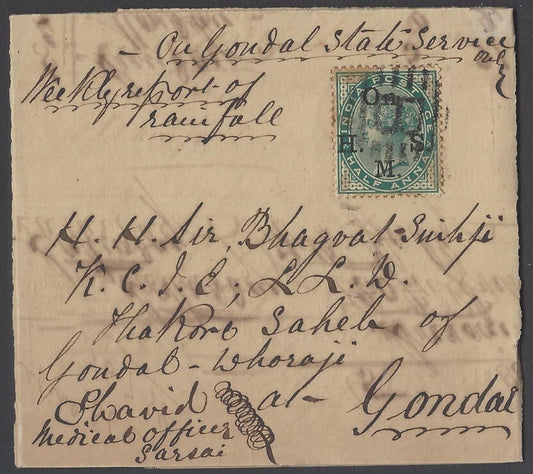 - On Gondal State Service
only
Weekly report of
rainfall
INDIA POSTAGE
On
H. S.
M.
HALF ANNA
H. H. Sir, Bhagvat-Sinhji
K. C. I. E; L L. D.
Thakore Saheb of
Gondal - Dhoraji
at - Gondal
Medical officer
Sarsai